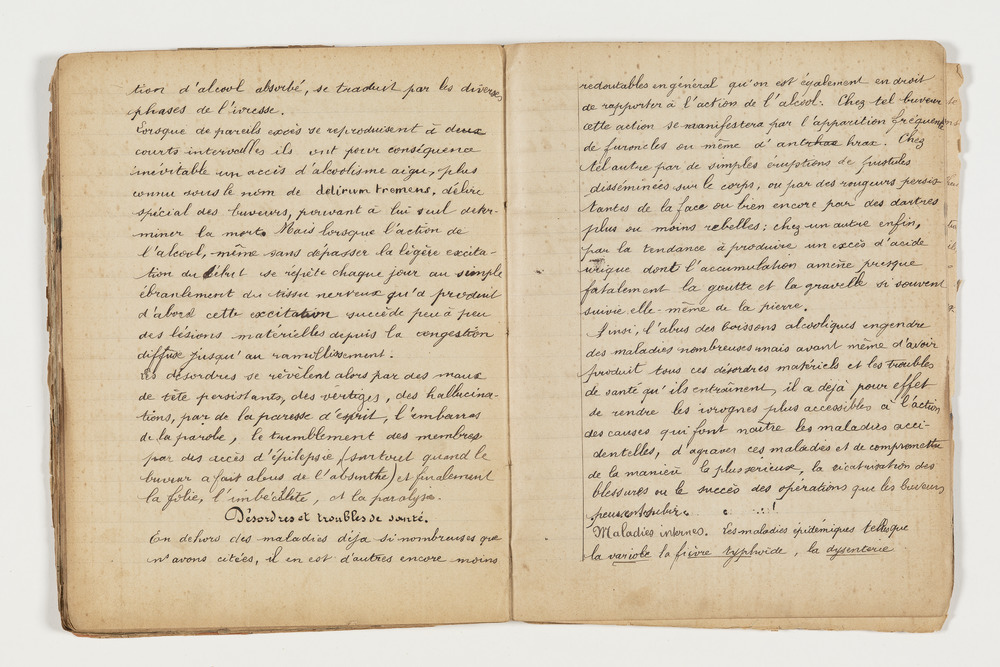 tion d'alcool absorbé, se traduit par les diverses
phrases de l'ivresse.
Lorsque de pareils excès se reproduisent à deux
courts intervalles ils ont pour conséquence
inévitable un accès d'alcoolisme aigu, plus
connu sous le nom de delirium tremens, délire
spécial des buveurs, pouvant à lui seul déter-
miner la mort. Mais lorsque l'action de
l'alcool, même sans dépasser la légère excita-
tion du début se répète chaque jour au simple
ébranlement du tissu nerveux qu'a produit
d'abord cette excitation succède peu à peu
des lésions matérielles depuis la congestion
diffuse jusqu'au ramollissement.
Les désordres se révèlent alors par des maux
de tête persistants, des vertiges, des hallucina-
tions, par de la paresse d'esprit, l'embarras
de la parole, le tremblement des membres
par des accès d'épilepsie (surtout quand le
buveur a fait abus de l'absinthe) et finalement
la folie, l'imbécilité, et la paralysie.
Désordres et troubles de santé.
En dehors des maladies déja si nombreuses que
n's avons citées, il en est d'autres encore moins
redoutables en général qu'on est également en droit
de rapporter à l'action de l'alcool. Chez tel buveur
cette action se manifestera par l'apparition fréquente
de furoncles ou même d'anthrax. Chez
tel autre par de simples éruptions de pustules
disséminées sur le corps, ou par des rougeurs persis-
tantes de la face ou bien encore par des dartres
plus ou moins rebelles; chez un autre enfin,
par la tendance à produire un excès d'acide
urique dont l'accumulation amène presque
fatalement la goutte et la gravelle si souvent
suivie elle-même de la pierre.
Ainsi, l'abus des boissons alcooliques engendre
des maladies nombreuses mais avant même d'avoir
produit tous ces désordres matériels et les troubles
de santé qu'ils entraînent, il a déjà pour effet
de rendre les ivrognes plus accessibles à l'action
des causes qui font naître les maladies acci-
dentelles, d'agraver ces maladies et de compromettre
de la manière la plus sérieux, la cicatrisation des
blessures ou le succès des opérations que les buveurs
peuvent subir.
Maladies internes. Les maladies épidémiques telles que
la variole la fièvre typhoïde, la dysenterie